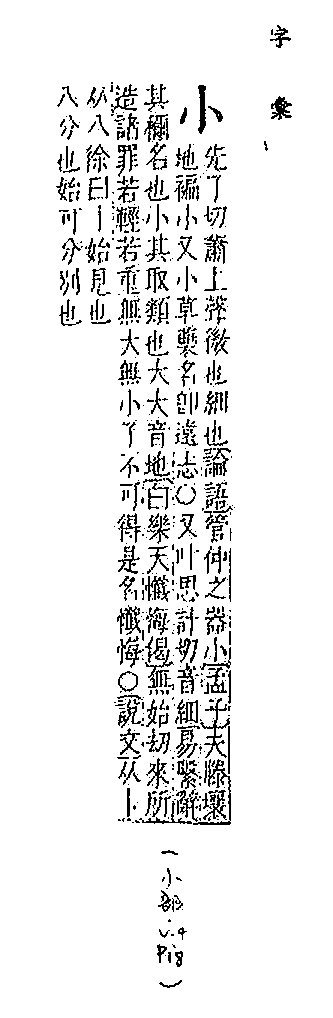 字彙
小
先了切蕭上聲微也細也論語管仲之器小孟子夫滕壤
地褊小又小草藥名卽遠志○又叶思計切音細易繫辭
其稱名也小其取類也大大音地白樂天懺悔偈無始劫來所
造諸罪若輕若重無大無小了不可得是名懺悔○說文从丨
从八徐曰丨始見也
八分也始可分別也
(小部 v.4 P18)